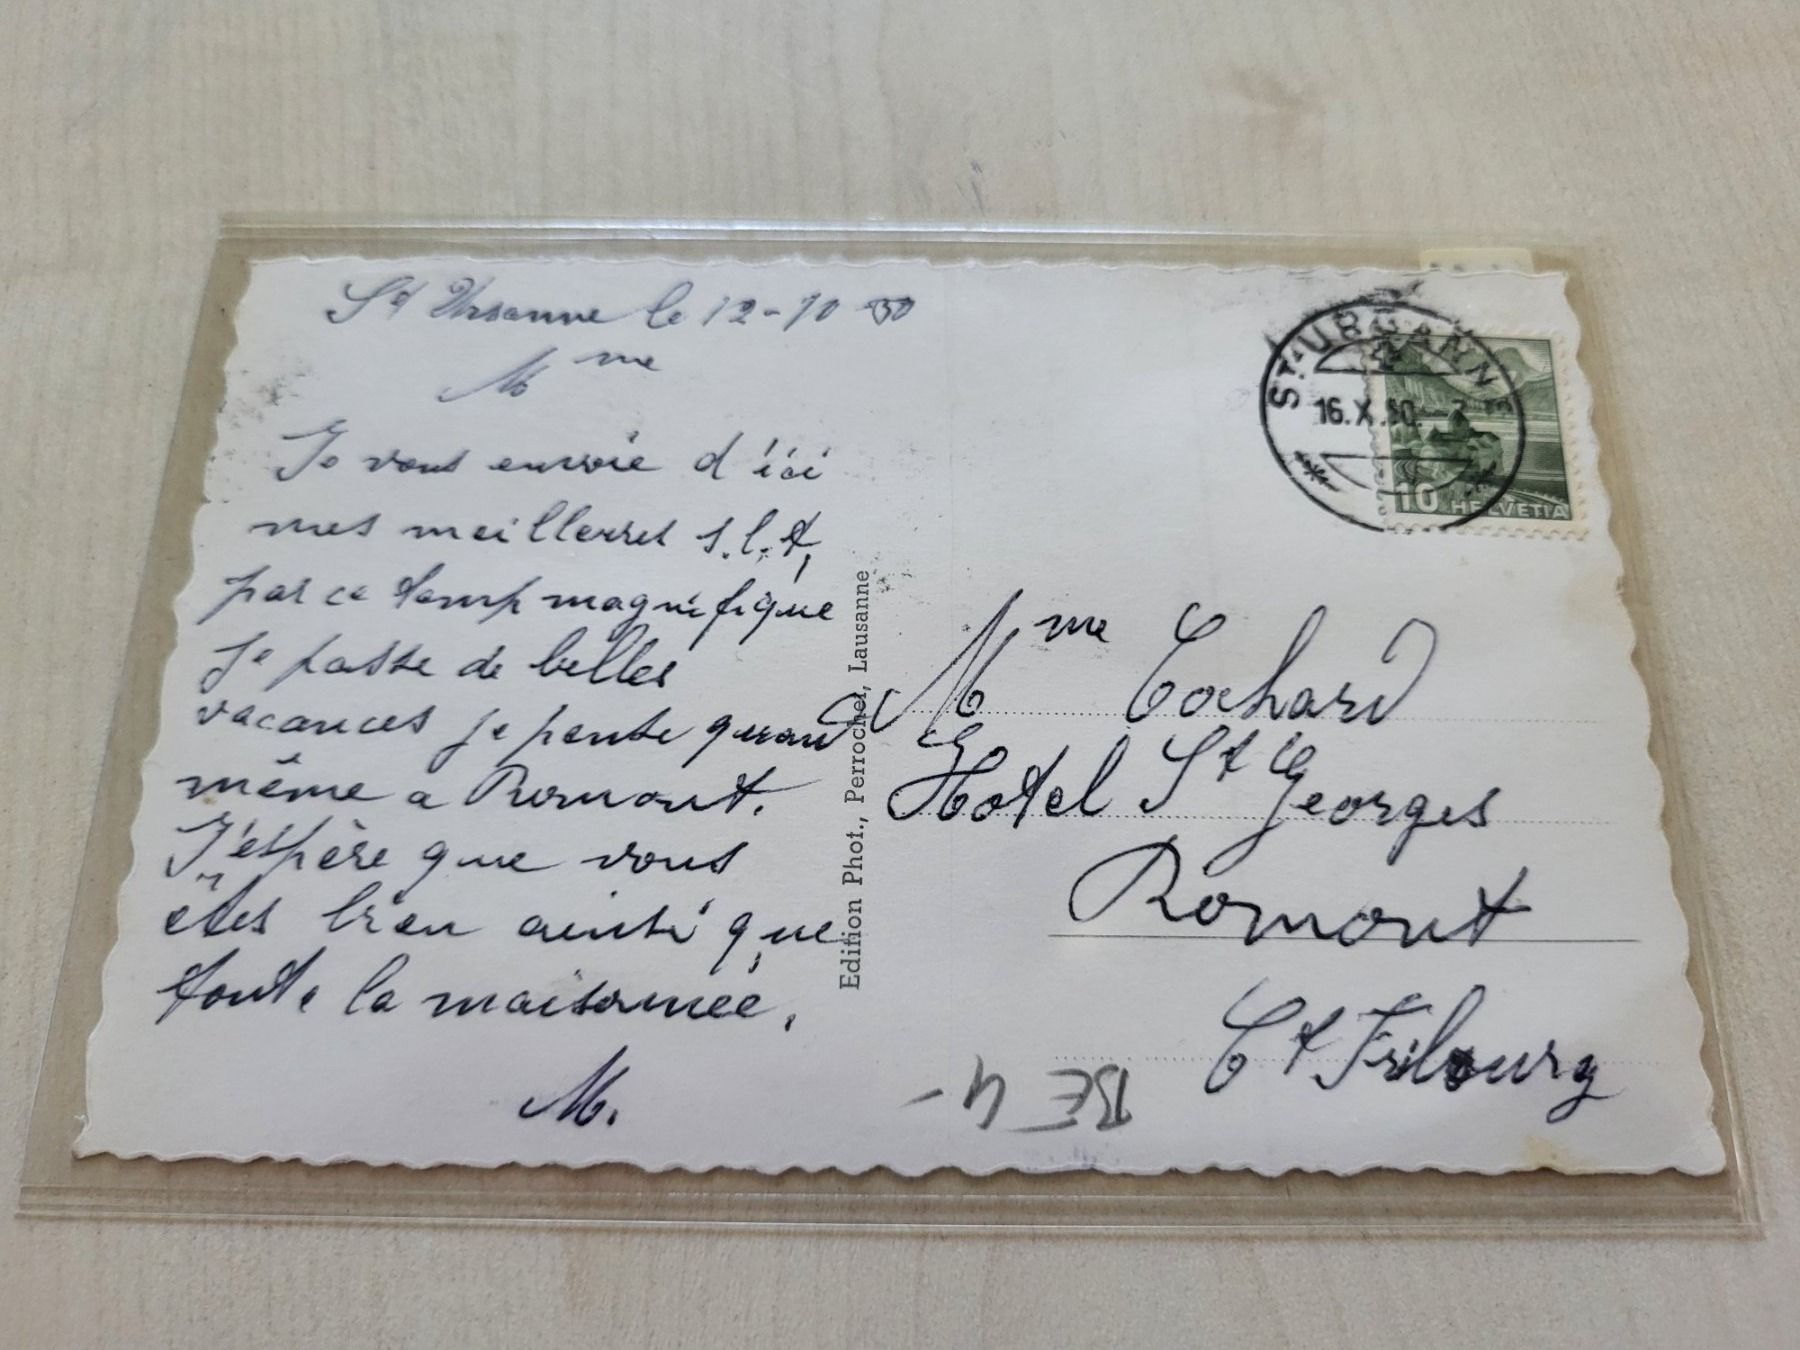 St Ursanne le 12-10-50
Mme
Je vous envoie d'ici
mes meilleures s.l.t,
par ce temp magnifique
je passe de belles
vacances je pense quand
même a Romont.
J'espère que vous
êtes bien ainsi que
toute la maisonnée,
M.
Edition Phot., Perrochet, Lausanne
ST-URSANNE
16.X.50.-7
10 HELVETIA
Mme Cochard
Hotel St Georges
Romont
Ct Fribourg
BE 4-